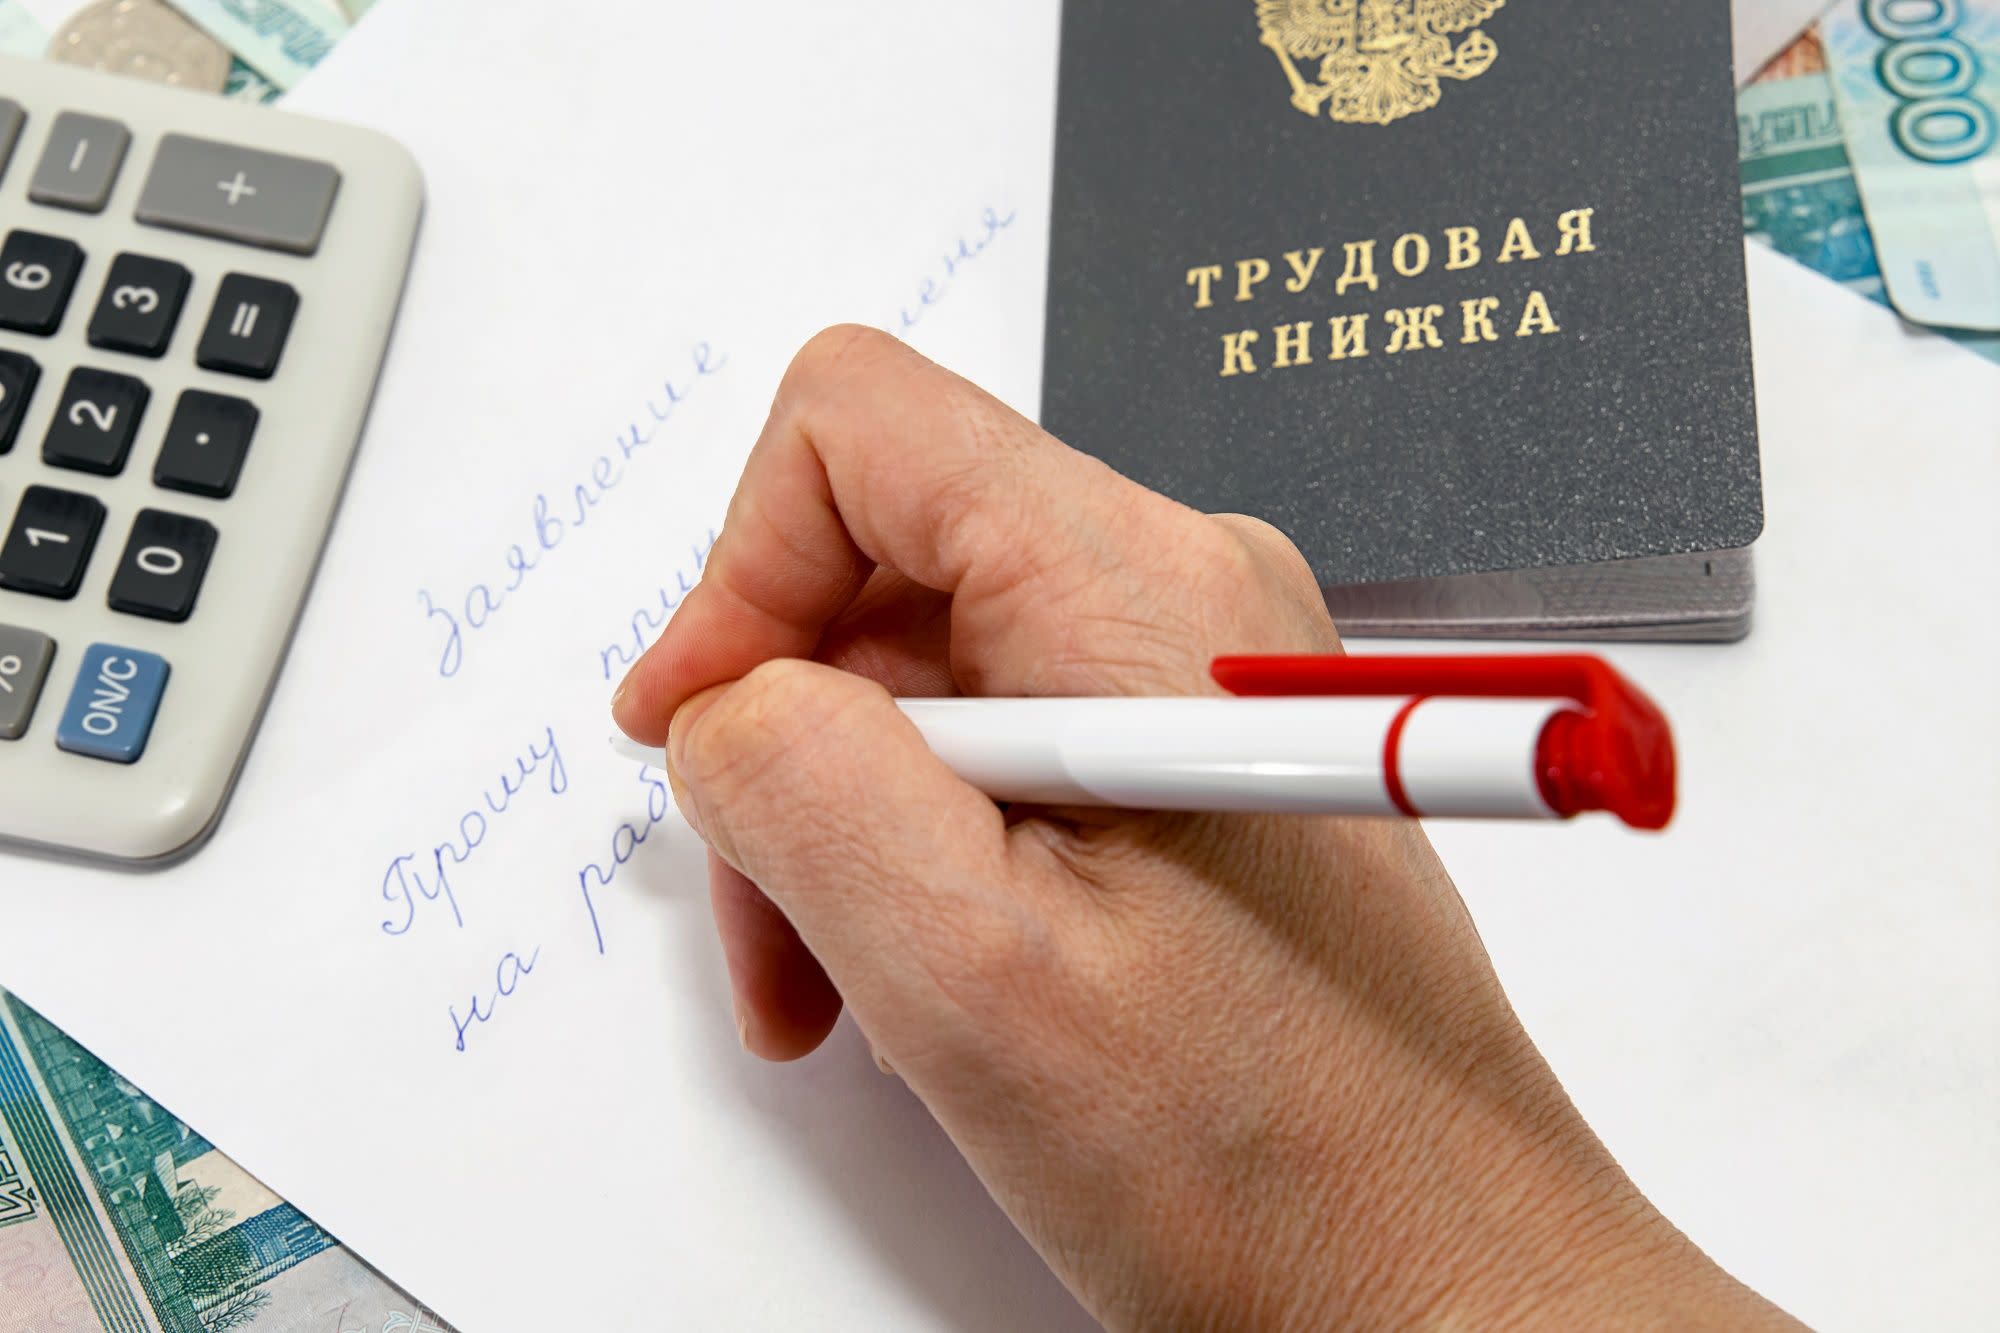 ТРУДОВАЯ
КНИЖКА
Заявление
Прошу прин меня
на раб
- +
6 3 =
2 .
1 0
% ON/C
000